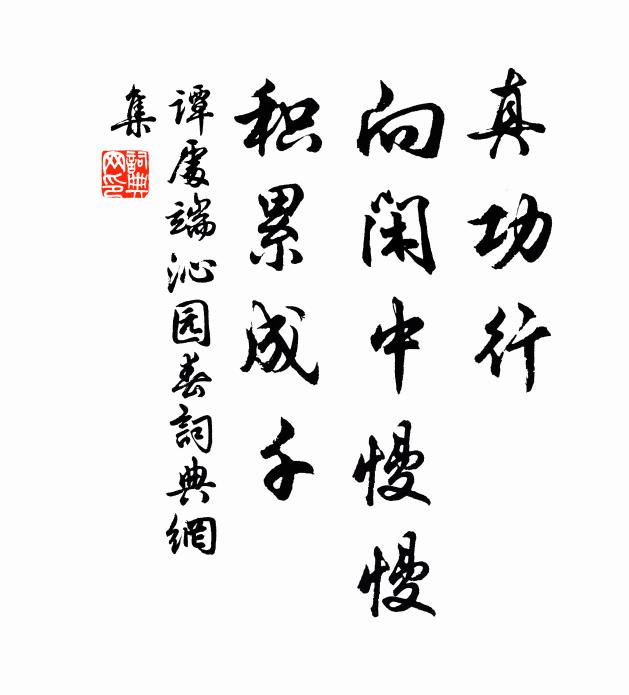 真功行
向闲中慢慢
积累成千
譚處端沁园春詞典網
集
詞典网印